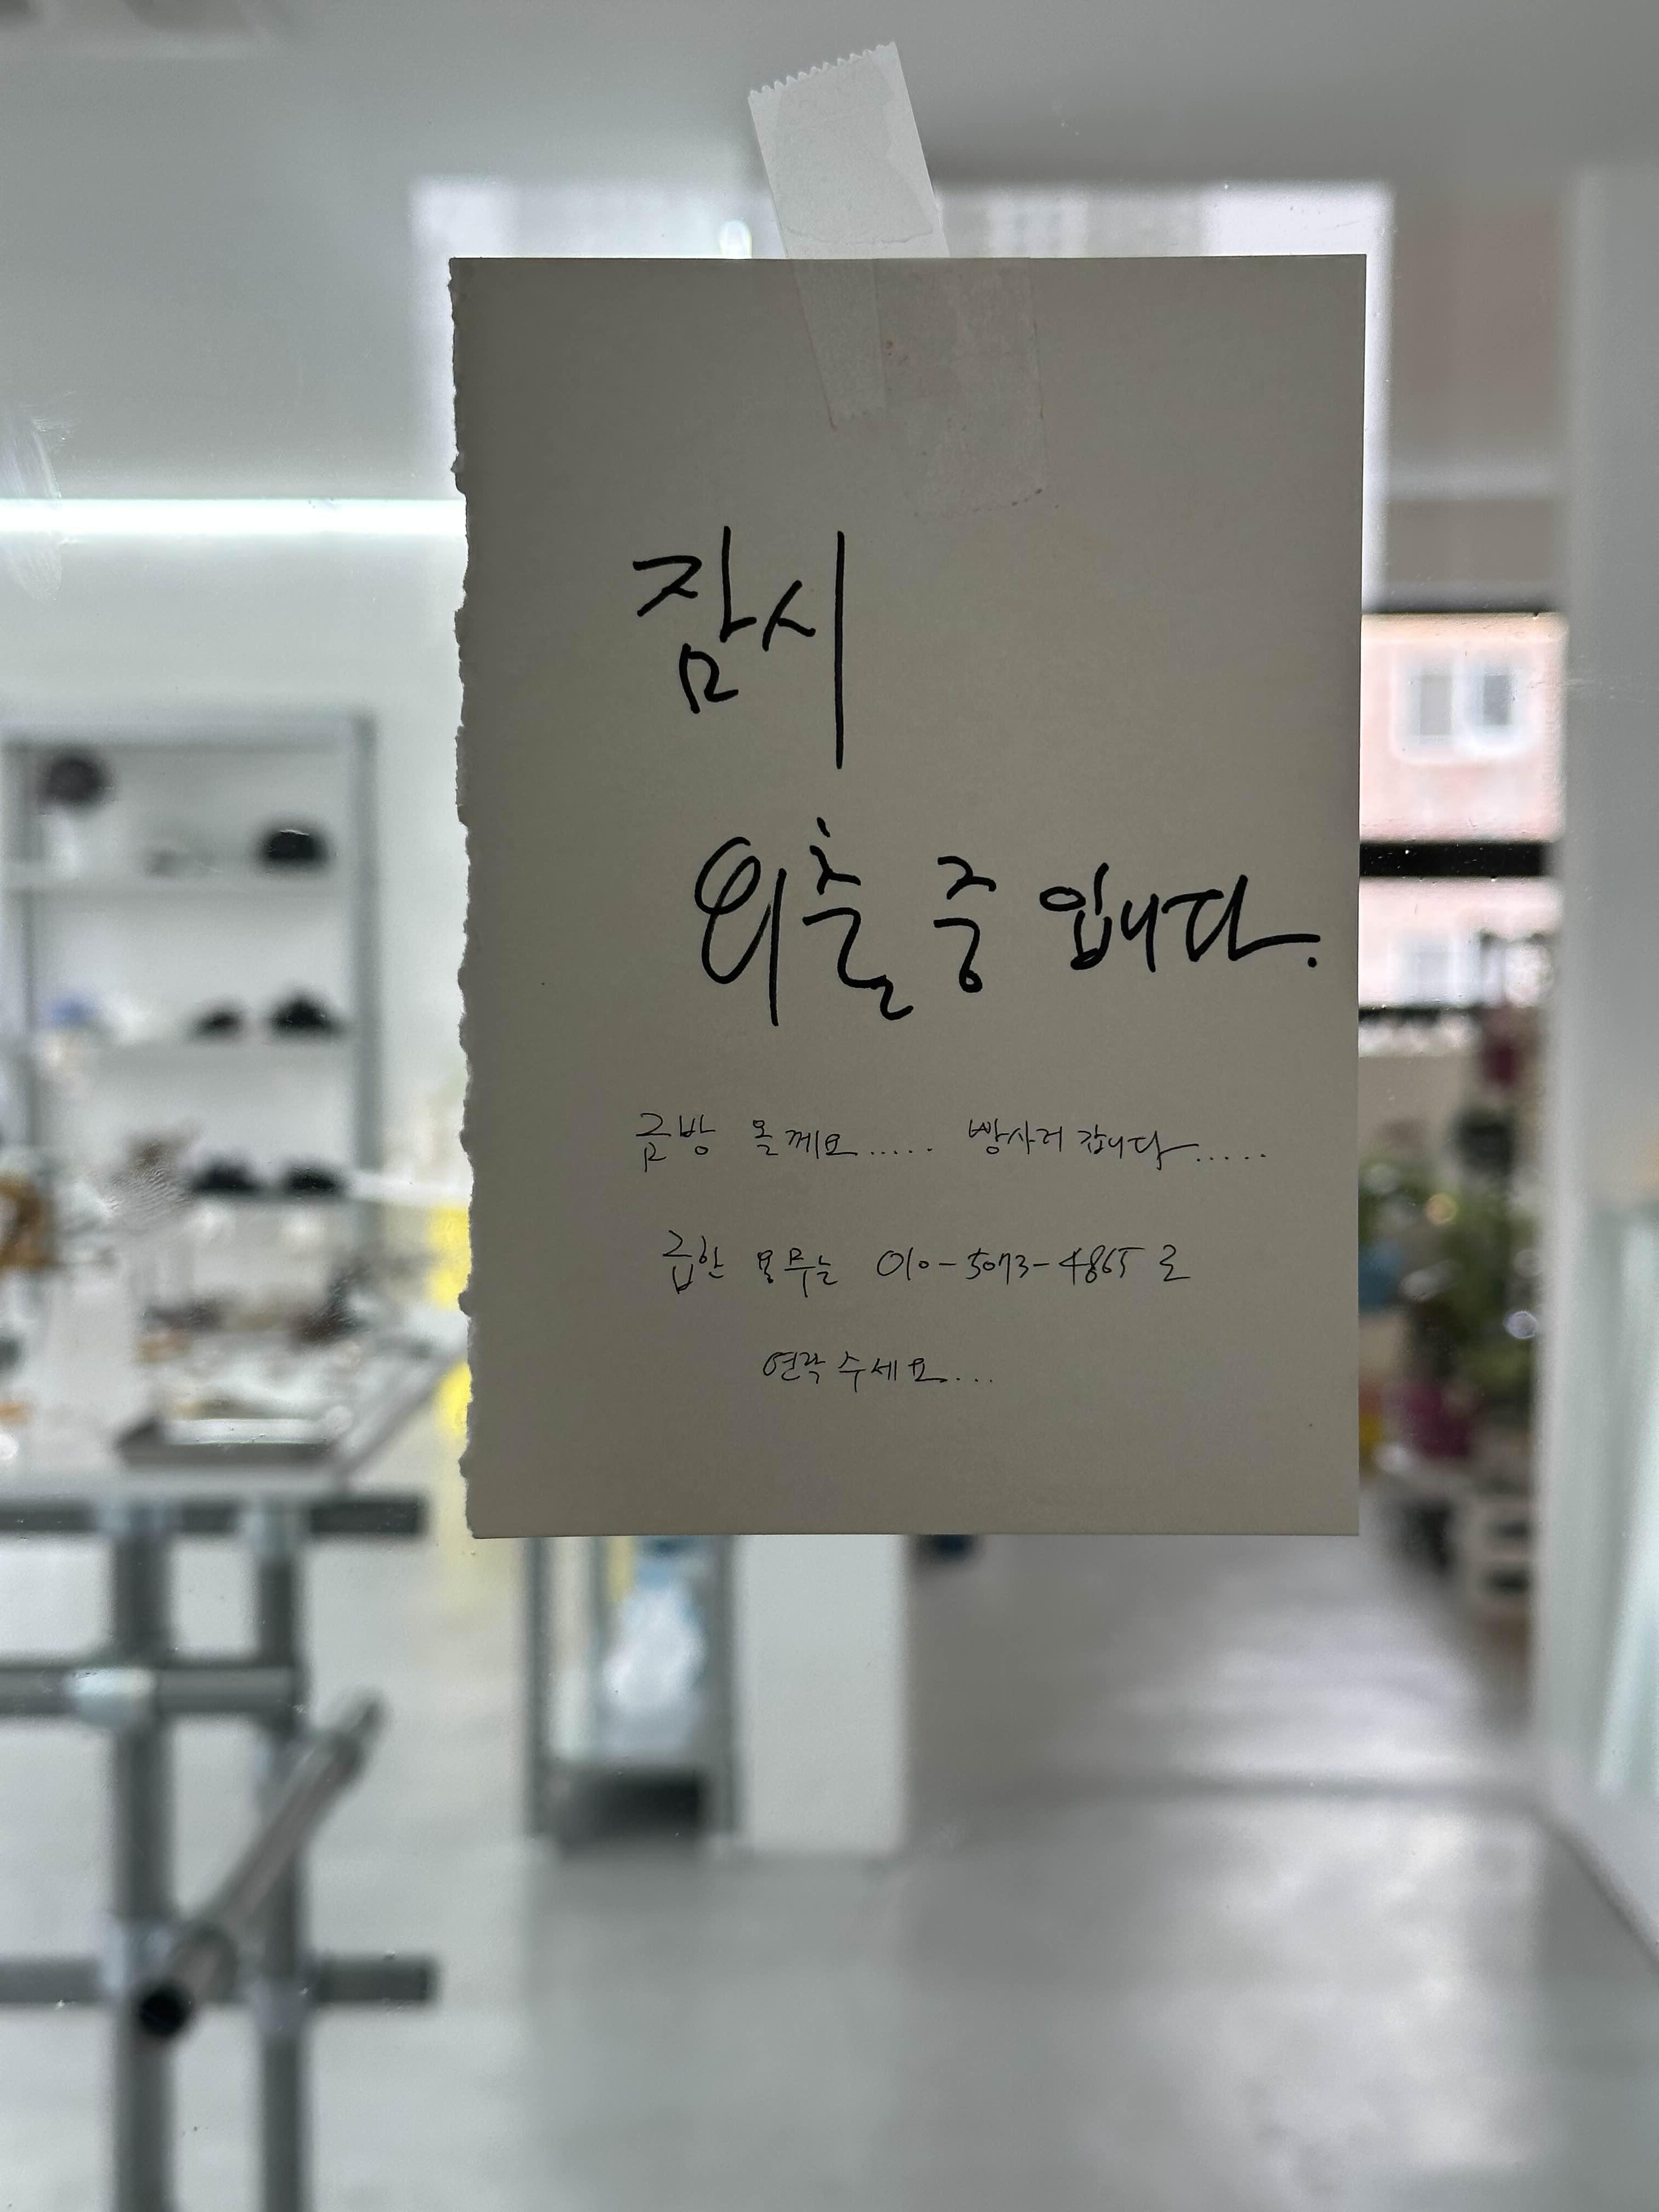 잠시
외출 중 입니다.
금방 올께요..... 빵사러 갑니다.....
급한 용무는 010-5073-4865 로
연락 주세요...